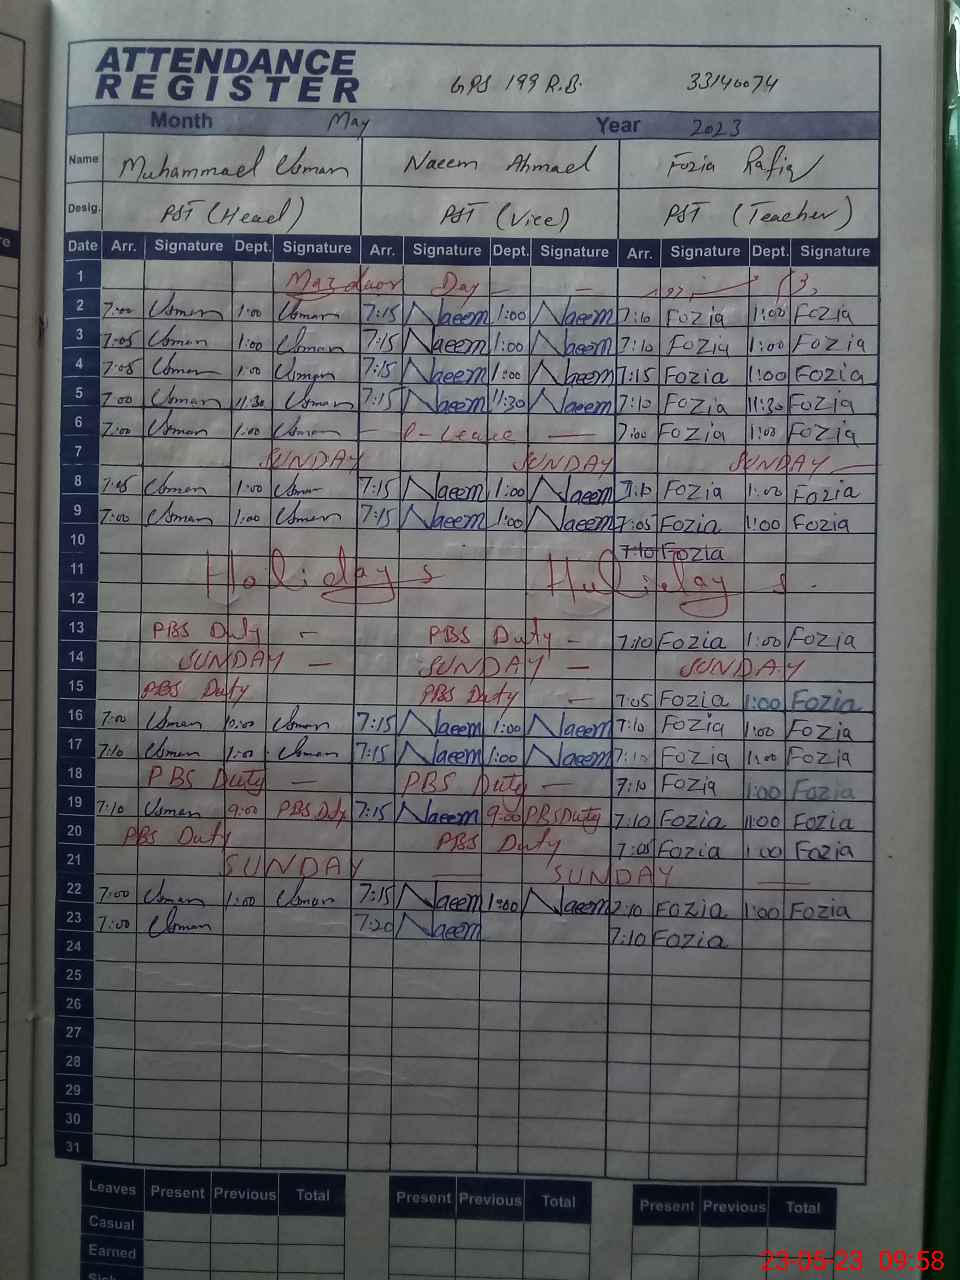 ATTENDANCE
REGISTER GPS 199 R.B. 33140074
Month May Year 2023
Name Muhammad Usman Naeem Ahmad Fozia Rafiq
Desig. PST (Head) PST (Vice) PST (Teacher)
Date Arr. Signature Dept. Signature Arr. Signature Dept. Signature Arr. Signature Dept. Signature
1 Mazdoor Day -
2 7:00 Usman 1:00 Usman 7:15 Naeem 1:00 Naeem 7:10 Fozia 1:00 Fozia
3 7:05 Usman 1:00 Usman 7:15 Naeem 1:00 Naeem 7:10 Fozia 1:00 Fozia
4 7:05 Usman 1:00 Usman 7:15 Naeem 1:00 Naeem 7:15 Fozia 1:00 Fozia
5 7:00 Usman 11:30 Usman 7:15 Naeem 11:30 Naeem 7:10 Fozia 11:30 Fozia
6 7:00 Usman 1:00 Usman - P-Leave — 7:00 Fozia 1:00 Fozia
7 SUNDAY SUNDAY SUNDAY —
8 7:05 Usman 1:00 Usman 7:15 Naeem 1:00 Naeem 7:10 Fozia 1:00 Fozia
9 7:00 Usman 1:00 Usman 7:15 Naeem 1:00 Naeem 7:05 Fozia 1:00 Fozia
10 7:10 Fozia
11 Holidays Holidays
12
13 PBS Duty - PBS Duty - 7:10 Fozia 1:00 Fozia
14 SUNDAY — SUNDAY — SUNDAY
15 PBS Duty PBS Duty - 7:05 Fozia 1:00 Fozia
16 7:00 Usman 10:00 Usman 7:15 Naeem 1:00 Naeem 7:10 Fozia 1:00 Fozia
17 7:10 Usman 1:00 Usman 7:15 Naeem 1:00 Naeem 7:10 Fozia 1:00 Fozia
18 PBS Duty — PBS Duty - 7:10 Fozia 1:00 Fozia
19 7:10 Usman 9:00 PBS Duty 7:15 Naeem 9:00 PBS Duty 7:10 Fozia 1:00 Fozia
20 PBS Duty PBS Duty 7:05 Fozia 1:00 Fozia
21 SUNDAY — SUNDAY —
22 7:00 Usman 1:00 Usman 7:15 Naeem 1:00 Naeem 7:10 Fozia 1:00 Fozia
23 7:00 Usman 7:20 Naeem 7:10 Fozia
24
25
26
27
28
29
30
31
Leaves Present Previous Total Present Previous Total Present Previous Total
Casual
Earned
23-05-23 09:58